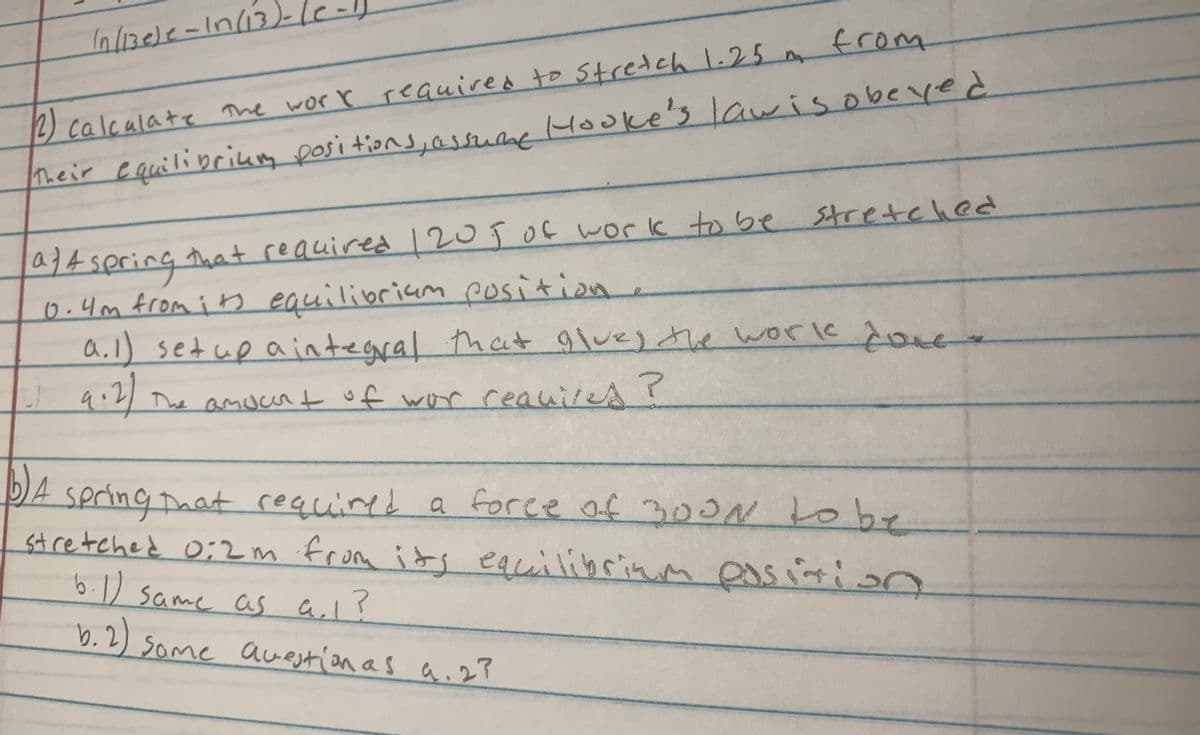 ln(13e)e-ln(13)-(e-1)
2) calculate the work required to stretch 1.25 m from
their equilibrium positions, assume Hooke's law is obeyed
a) A spring that required 120 J of work to be stretched
0.4m from its equilibrium position.
a.1) set up a integral that gives the work done
a.2) The amount of wor required?
b) A spring that required a force of 300N to be
stretched 0.2m from its equilibrium position
b.1) same as a.1?
b.2) same question as a.2?